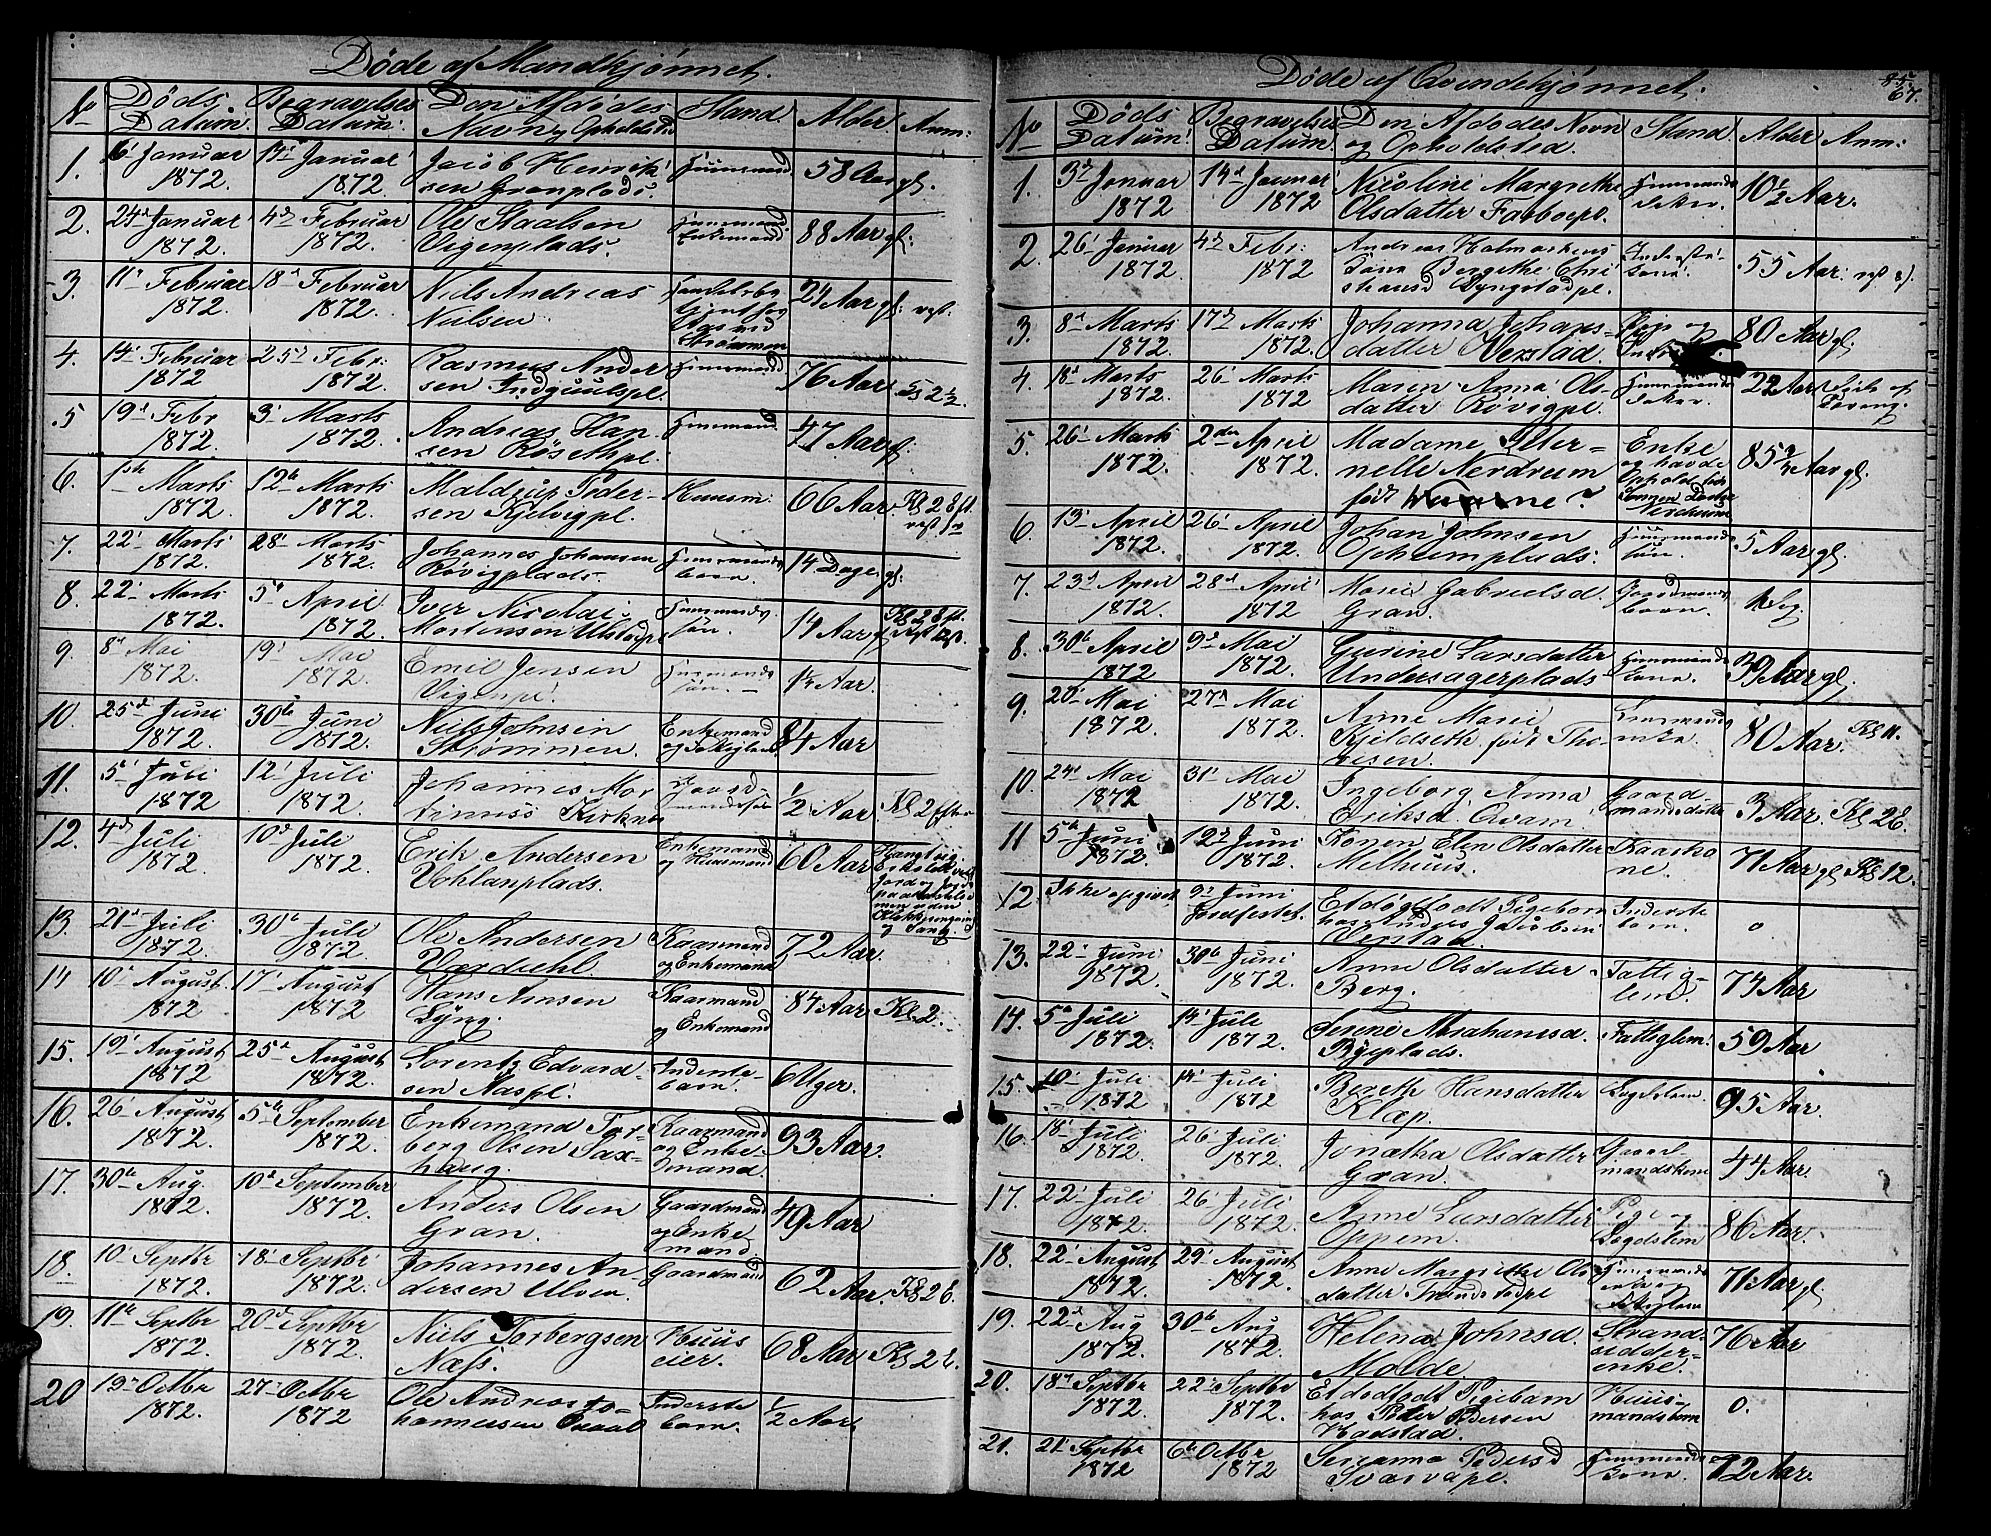 Døde af Mandkjønnet.
No
Døds Datum.
Begravelses Datum:
Den Afdødes Navn og Opholdsted
Stand.
Alder.
Anm:
1. 6' Januar 1872. 14' Januar 1872. Jacob Henrik
sen Granplads. Huusmand 58 Aar gl.
2. 24d Januar 1872. 4d Februar 1872. Ole Staalsen
Vigenplads. Huusmand Enkemand 88 Aar gl.
3. 11' Februar 1872. 18' Februar 1872. Niels Andreas
Nielsen. 24 Aar gl.
4. 14' Februar 1872 25d Febr: 1872. Rasmus Ander
sen Huusmand 76 Aar
5 19d Febr 1872. 3' Marts 1872. Andreas Han
sen Røsethpl. Huusmand. 47 Aar gl.
6. 1ste Marts 1872. 12te Marts 1872. Peder-
sen Kjelvigpl. Huusm: 66 Aar.
7. 22' Marts 1872. 28' Marts 1872. Johannes Johansen
Røvigplads. Huusmands barn. 14 Dage gl:
8. 22' Marts 1872. 5te April 1872. Iver Nicolai
Mortensen Huusmands søn. 14 Aar
9. 8d Mai 1872. 19' Mai 1872. Emil Jensen
Vigenpl. Husmands søn. 1¼ Aar.
10. 25d Juni 1872. 30te Juni 1872. Niels Johnsen
Strømmen. Enkemand 84 Aar
11. 5' Juli 1872 12' Juli 1872. Johannes Mar
Kirknes ½ Aar. Kl 2 Efter
12. 4d Juli 1872. 10d Juli 1872. Erik Andersen
Enkemand og Kaarmand 60 Aar
13. 21d Juli 1872. 30te Juli 1872. Ole Andersen
Kaarmand og Enkemand 72 Aar.
14 10d August. 1872 17' August 1872. Hans Amsen
Lyng. Kaarmand og Enkemand 84 Aar Kl. 2.
15. 19' August 1872 25d August 1872. Lorents Edvard-
sen Naspl. Inderste-barn. 6 Uger.
16. 26' August 1872. 5te September 1872. Enkemand Tor-
berg Olsen Sax-
haug. Kaarmand og Enke-mand. 93 Aar.
17. 30te Aug. 1872. 10d September 1872. Anders Olsen
Gran. Gaardmand og Enke mand. 49 Aar
18. 10' Septbr 1872. 18' Septbr 1872. Johannes An
dersen Ulven. Gaardmand 62 Aar. Kl 2 E.
19. 11te Septbr 1872. 20d Septbr 1872. Niels Torbergsen
Næss. Huus eier. 68 Aar Kl 2 E.
20 19' Octbr 1872. 27' Octbr 1872 Ole Andreas Jo-
hannessen Inderste barn. ½ Aar.
Døde af Qvindekjønnet.
85
67.
No
Døds Datum.
Begravelses Datum.
Den Afdødes Navn og Opholdsted.
Stand.
Alder
Anm:
1. 3d Januar 1872 14d Januar 1872 Nicoline Margrethe
Olsdatter Farboepl. Huusmands 10½ Aar.
2. 26' Januar 1872. 4d Febr: 1872 Andreas
Kone Bergethe Chri
stiansd Lyngstadpl. Inderste kone. 55 Aar:
3. 8d Marts 1872. 17d Marts 1872. Johanna Johans=
datter Verstad. Pige og 80 Aar gl.
4. 18d Marts 1872. 26' Marts 1872 Maren Anna Ols-
datter Røvigpl. Huusmands 22 Aar
5. 26' Marts 1872. 2den April 1872. Madame Peter=
nelle Nerdrum
født Enke og havde Ophold 85 Aar gl.
6. 13' April 1872. 26' April 1872. Johan Johnsen
Opheimplads. Huusmands søn. 5 Aar gl.
7. 23d April 1872. 28d April 1872 Marie Gabrielsd.
Gran. Gaardmands barn.
8. 30te April 1872 9d Mai 1872. Gurine Larsdatter
Undersagerplads Huusmands kone. 39 Aar gl.
9. 20' Mai 1872. 27d Mai 1872. Anne Marie
Kjeldseth født Tho-
resen. Huusmands enke. 80 Aar. Kl 11.
10. 24d Mai 1872 31' Mai 1872. Ingeborg Anna
Eriksd. Qvam. Gaard mandsdatter 3 Aar Kl 2 E.
11 5te Juni 1872. 12d Juni 1872. Konen Elen Olsdatter
Melhuus. Kaarko ne. 71 Aar gl Kl 12.
12. Ikke opgivet 9d Juni Jordfestet. Et dødfødt Pigebarn
hos Anders Jacobsen
Verstad. Inderste barn. 0
13. 22' Juni 1872. 30te Juni 1872. Anne Olsdatter
Berg. Fattig-lem. 74 Aar
14. 5te Juli 1872. 14' Juli 1872. Serene Abrahamsd.
Byeplads. Fattiglem. 59 Aar
15. 10' Juli 1872 14' Juli 1872 Bereth Hansdatter
Klæp. Lægdslem. 95 Aar.
16. 18' Juli 1872. 26' Juli 1872. Jonetha Olsdatter
Gran. Gaard-mandskone 44 Aar.
17. 22' Juli 1872. 26' Juli 1872. Anne Larsdatter
Oppem. Pige og Lægdslem 86 Aar.
18. 22' August 1872. 29' August 1872. Anne Margrethe Ols
datter Huusmands enke og 71 Aar gl.
19. 22d Aug 1872. 30te Aug 1872. Helena Johnsd.
Molde. Strand-sidder-enke. 76 Aar
20. 18d Septbr 1872. 22' Septbr 1872. Et dødfødt Pigebarn
hos Peter Pedersen
Huus-mandsbarn 0.
21. 21' Septbr 1872 6te Octbr 1872 Serianna Pedersd
Huusmands kone. 72 Aar.